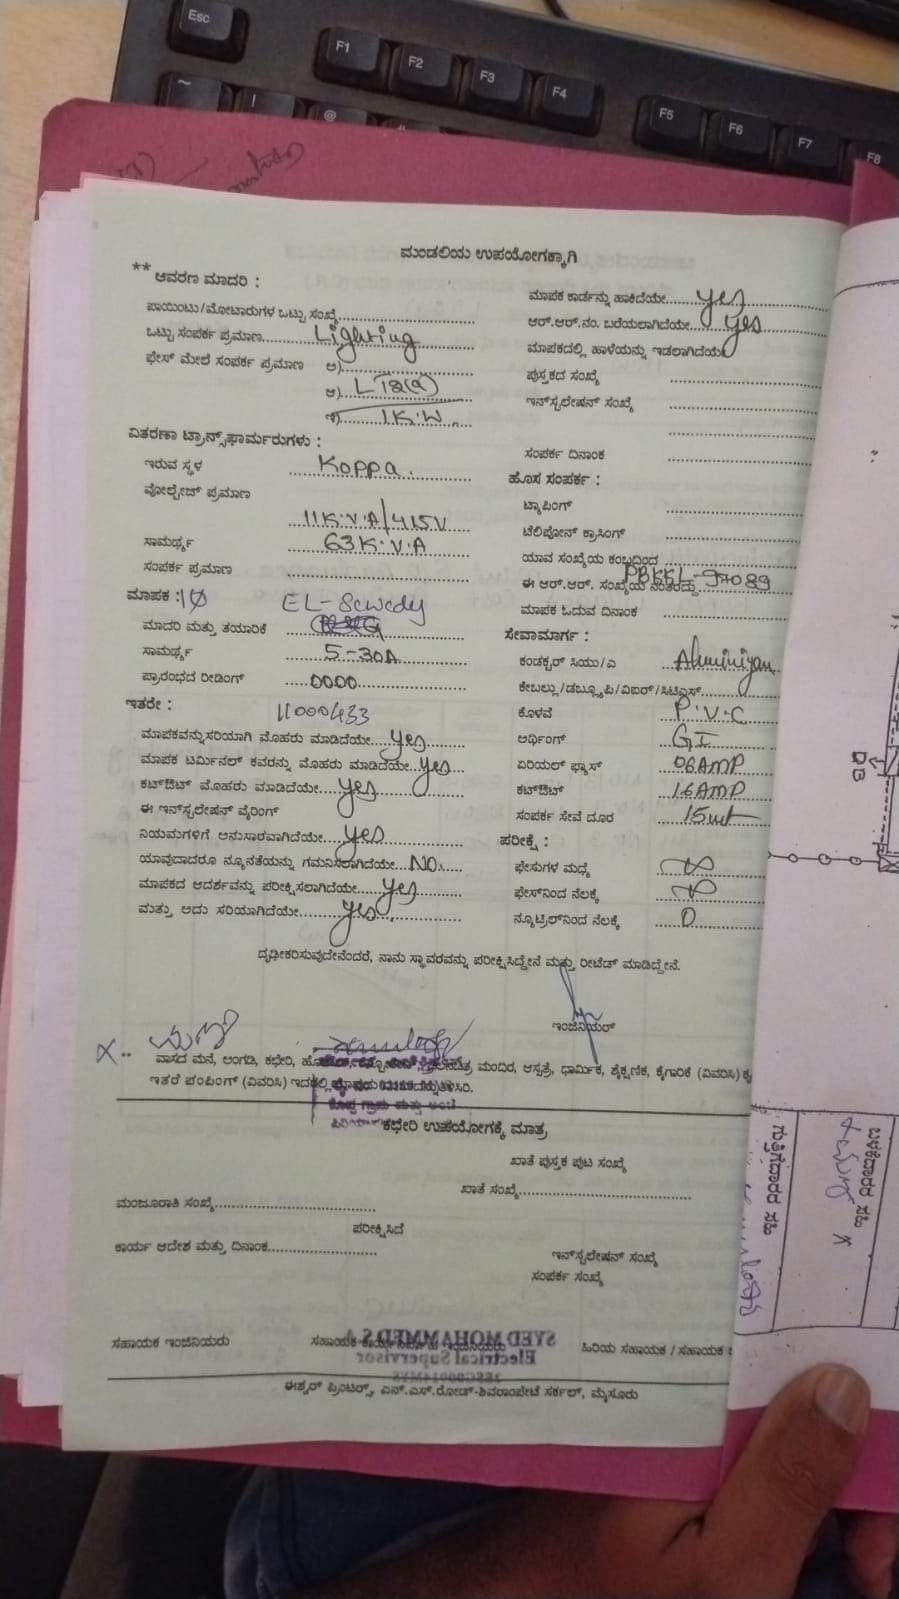 Esc
F1
F2
F3
F4
F5
F6
F7
F8
~
!
@
ಮಂಡಲಿಯ ಉಪಯೋಗಕ್ಕಾಗಿ
** ಆವರಣ ಮಾದರಿ :
ಪಾಯಿಂಟು/ಮೋಟಾರುಗಳ ಒಟ್ಟು ಸಂಖ್ಯೆ
ಒಟ್ಟು ಸಂಪರ್ಕ ಪ್ರಮಾಣ Lighting
ಫೇಸ್ ಮೇಲೆ ಸಂಪರ್ಕ ಪ್ರಮಾಣ ಅ)
ಆ) LT2(a)
ಇ) 1K.W.
ವಿತರಣಾ ಟ್ರಾನ್ಸ್‌ಫಾರ್ಮರುಗಳು :
ಇರುವ ಸ್ಥಳ Koppa.
ವೋಲ್ಟೇಜ್ ಪ್ರಮಾಣ
11K.V.A/415V
ಸಾಮರ್ಥ್ಯ 63K.V.A
ಸಂಪರ್ಕ ಪ್ರಮಾಣ
ಮಾಪಕ : 1Ø EL-Sewedy
ಮಾದರಿ ಮತ್ತು ತಯಾರಿಕೆ
ಸಾಮರ್ಥ್ಯ 5-30A
ಪ್ರಾರಂಭದ ರೀಡಿಂಗ್ 0000
ಇತರೇ : 11000433
ಮಾಪಕವನ್ನು ಸರಿಯಾಗಿ ಮೊಹರು ಮಾಡಿದೆಯೇ yes
ಮಾಪಕ ಟರ್ಮಿನಲ್ ಕವರನ್ನು ಮೊಹರು ಮಾಡಿದೆಯೇ yes
ಕಟ್‌ಔಟ್ ಮೊಹರು ಮಾಡಿದೆಯೇ yes
ಈ ಇನ್‌ಸ್ಟಲೇಷನ್ ವೈರಿಂಗ್
ನಿಯಮಗಳಿಗೆ ಅನುಸಾರವಾಗಿದೆಯೇ yes
ಯಾವುದಾದರೂ ನ್ಯೂನತೆಯನ್ನು ಗಮನಿಸಲಾಗಿದೆಯೇ No.
ಮಾಪಕದ ಆದರ್ಶವನ್ನು ಪರೀಕ್ಷಿಸಲಾಗಿದೆಯೇ yes
ಮತ್ತು ಅದು ಸರಿಯಾಗಿದೆಯೇ yes
ಮಾಪಕ ಕಾರ್ಡನ್ನು ಹಾಕಿದೆಯೇ yes
ಆರ್.ಆರ್.ನಂ. ಬರೆಯಲಾಗಿದೆಯೇ yes
ಮಾಪಕದಲ್ಲಿ ಹಾಳೆಯನ್ನು ಇಡಲಾಗಿದೆಯೇ
ಪುಸ್ತಕದ ಸಂಖ್ಯೆ
ಇನ್‌ಸ್ಟಲೇಷನ್ ಸಂಖ್ಯೆ
ಸಂಪರ್ಕ ದಿನಾಂಕ
ಹೊಸ ಸಂಪರ್ಕ :
ಟ್ಯಾಪಿಂಗ್
ಟೆಲಿಫೋನ್ ಕ್ರಾಸಿಂಗ್
ಯಾವ ಸಂಖ್ಯೆಯ ಕಂಬದಿಂದ
ಈ ಆರ್.ಆರ್. ಸಂಖ್ಯೆಯ ನಂತರದ್ದು PBKKL-97089
ಮಾಪಕ ಓದುವ ದಿನಾಂಕ
ಸೇವಾಮಾರ್ಗ :
ಕಂಡಕ್ಟರ್ ಸಿಯು/ಎ Aluminiyam
ಕೇಬಲ್ಲು/ಡಬ್ಲ್ಯೂಪಿ/ವಿಐಆರ್/ಸಿಟಿಎಸ್
ಕೊಳವೆ P.V.C
ಅರ್ಥಿಂಗ್ GI
ಏರಿಯಲ್ ಫ್ಯೂಸ್ 06AMP
ಕಟ್‌ಔಟ್ 16AMP
ಸಂಪರ್ಕ ಸೇವೆ ದೂರ 15mt
ಪರೀಕ್ಷೆ :
ಫೇಸುಗಳ ಮಧ್ಯೆ ∞
ಫೇಸ್‌ನಿಂದ ನೆಲಕ್ಕೆ ∞
ನ್ಯೂಟ್ರಲ್‌ನಿಂದ ನೆಲಕ್ಕೆ 0
ದೃಢೀಕರಿಸುವುದೇನೆಂದರೆ, ನಾನು ಸ್ಥಾವರವನ್ನು ಪರೀಕ್ಷಿಸಿದ್ದೇನೆ ಮತ್ತು ರೀಟೆಡ್ ಮಾಡಿದ್ದೇನೆ.
ಇಂಜಿನಿಯರ್
ವಾಸದ ಮನೆ, ಅಂಗಡಿ, ಕಛೇರಿ, ಮಂದಿರ, ಆಸ್ಪತ್ರೆ, ಧಾರ್ಮಿಕ, ಶೈಕ್ಷಣಿಕ, ಕೈಗಾರಿಕೆ (ವಿವರಿಸಿ)
ಇತರೆ ಪಂಪಿಂಗ್ (ವಿವರಿಸಿ)
ಕಛೇರಿ ಉಪಯೋಗಕ್ಕೆ ಮಾತ್ರ
ಖಾತೆ ಪುಸ್ತಕ ಪುಟ ಸಂಖ್ಯೆ
ಖಾತೆ ಸಂಖ್ಯೆ
ಮಂಜೂರಾತಿ ಸಂಖ್ಯೆ
ಪರೀಕ್ಷಿಸಿದೆ
ಕಾರ್ಯ ಆದೇಶ ಮತ್ತು ದಿನಾಂಕ
ಇನ್‌ಸ್ಟಲೇಷನ್ ಸಂಖ್ಯೆ
ಸಂಪರ್ಕ ಸಂಖ್ಯೆ
SYED MOHAMMED S A
Electrical Supervisor
ಸಹಾಯಕ ಇಂಜಿನಿಯರು
ಹಿರಿಯ ಸಹಾಯಕ / ಸಹಾಯಕ
ಈಶ್ವರ್ ಪ್ರಿಂಟರ್ಸ್, ಎನ್.ಎಸ್.ರೋಡ್-ಶಿವರಾಂಪೇಟೆ ಸರ್ಕಲ್, ಮೈಸೂರು
DB
ಬಳಕೆದಾರರ ಸಹಿ
ಗುತ್ತಿಗೆದಾರರ ಸಹಿ